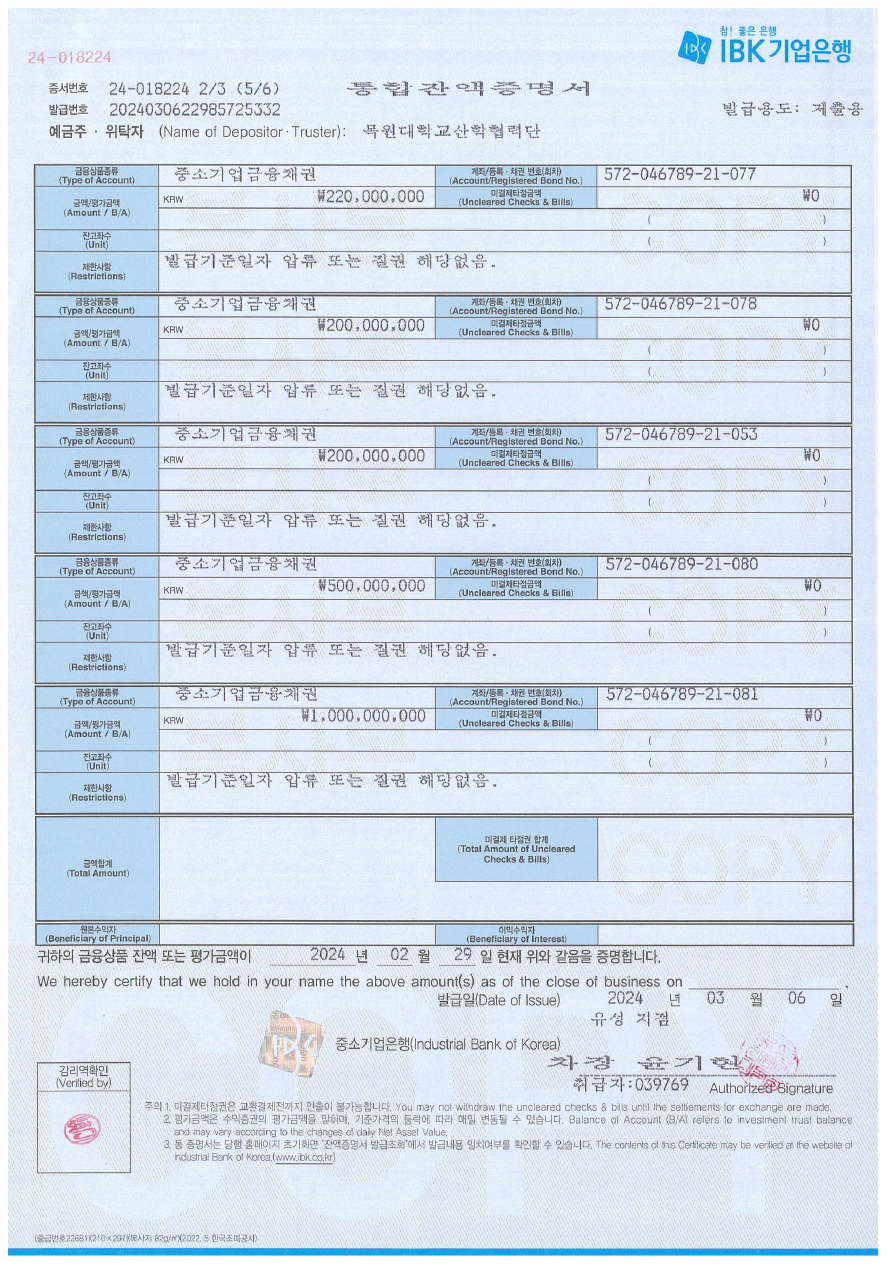 24-018224
참! 좋은 은행
IBK기업은행
증서번호 24-018224 2/3 (5/6) 통합잔액증명서
발급번호 2024030622985725332 발급용도: 제출용
예금주·위탁자 (Name of Depositor·Truster): 목원대학교산학협력단
금융상품종류 (Type of Account) 중소기업금융채권 계좌/등록·채권 번호(회차) (Account/Registered Bond No.) 572-046789-21-077
금액/평가금액 (Amount / B/A) KRW ₩220,000,000 미결제타점금액 (Uncleared Checks & Bills) ₩0
( )
잔고좌수 (Unit) ( )
제한사항 (Restrictions) 발급기준일자 압류 또는 질권 해당없음.
금융상품종류 (Type of Account) 중소기업금융채권 계좌/등록·채권 번호(회차) (Account/Registered Bond No.) 572-046789-21-078
금액/평가금액 (Amount / B/A) KRW ₩200,000,000 미결제타점금액 (Uncleared Checks & Bills) ₩0
( )
잔고좌수 (Unit) ( )
제한사항 (Restrictions) 발급기준일자 압류 또는 질권 해당없음.
금융상품종류 (Type of Account) 중소기업금융채권 계좌/등록·채권 번호(회차) (Account/Registered Bond No.) 572-046789-21-053
금액/평가금액 (Amount / B/A) KRW ₩200,000,000 미결제타점금액 (Uncleared Checks & Bills) ₩0
( )
잔고좌수 (Unit) ( )
제한사항 (Restrictions) 발급기준일자 압류 또는 질권 해당없음.
금융상품종류 (Type of Account) 중소기업금융채권 계좌/등록·채권 번호(회차) (Account/Registered Bond No.) 572-046789-21-080
금액/평가금액 (Amount / B/A) KRW ₩500,000,000 미결제타점금액 (Uncleared Checks & Bills) ₩0
( )
잔고좌수 (Unit) ( )
제한사항 (Restrictions) 발급기준일자 압류 또는 질권 해당없음.
금융상품종류 (Type of Account) 중소기업금융채권 계좌/등록·채권 번호(회차) (Account/Registered Bond No.) 572-046789-21-081
금액/평가금액 (Amount / B/A) KRW ₩1,000,000,000 미결제타점금액 (Uncleared Checks & Bills) ₩0
( )
잔고좌수 (Unit) ( )
제한사항 (Restrictions) 발급기준일자 압류 또는 질권 해당없음.
금액합계 (Total Amount) 미결제 타점권 합계 (Total Amount of Uncleared Checks & Bills)
COPY
원본수익자 (Beneficiary of Principal) 이익수익자 (Beneficiary of Interest)
귀하의 금융상품 잔액 또는 평가금액이 2024 년 02 월 29 일 현재 위와 같음을 증명합니다.
We hereby certify that we hold in your name the above amount(s) as of the close of business on .
발급일(Date of Issue) 2024 년 03 월 06 일
유성 지점
중소기업은행(Industrial Bank of Korea)
차장 윤기현
취급자:039769 Authorized Signature
감리역확인
(Verified by)
주의 1. 미결제타점권은 교환결제전까지 인출이 불가능합니다. You may not withdraw the uncleared checks & bills until the settlements for exchange are made.
2. 평가금액은 수익증권의 평가금액을 말하며, 기준가격의 등락에 따라 매일 변동될 수 있습니다. Balance of Account (B/A) refers to investment trust balance
and may vary according to the changes of daily Net Asset Value.
3. 동 증명서는 당행 홈페이지 초기화면 '잔액증명서 발급조회'에서 발급내용 일치여부를 확인할 수 있습니다. The contents of this Certificate may be verified at the website of
Industrial Bank of Korea.(www.ibk.co.kr)
COPY
(출급번호22681)(210×297)(복사지 82g/㎡)(2022. 5 한국조폐공사)